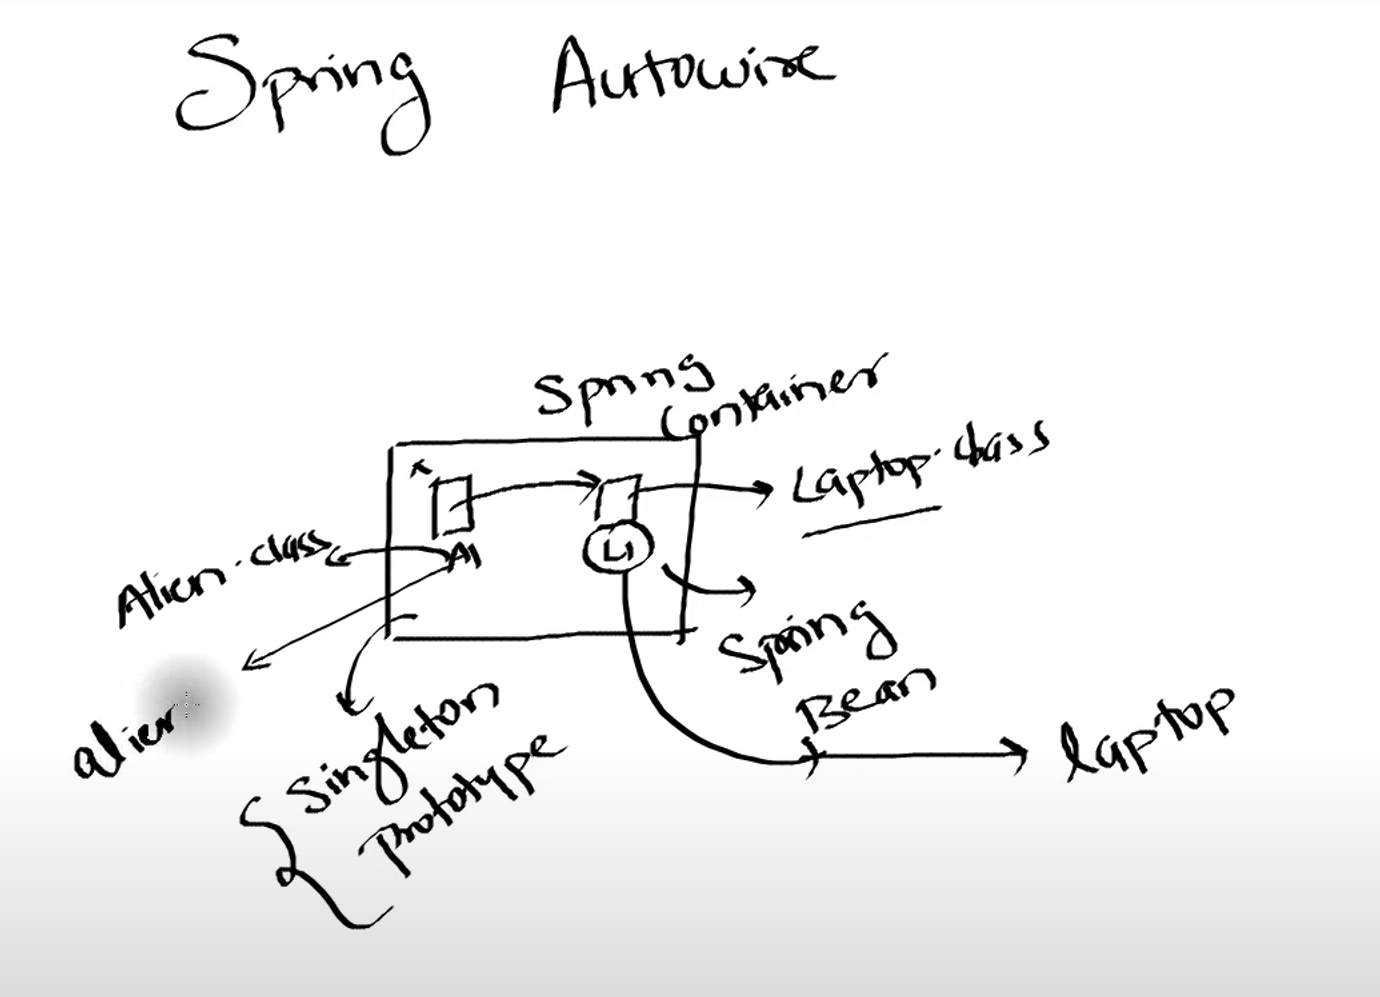 Spring Autowire
Spring
Container
Laptop.class
A1
L1
Alien.class
Spring
Bean
alien
Singleton
Prototype
laptop